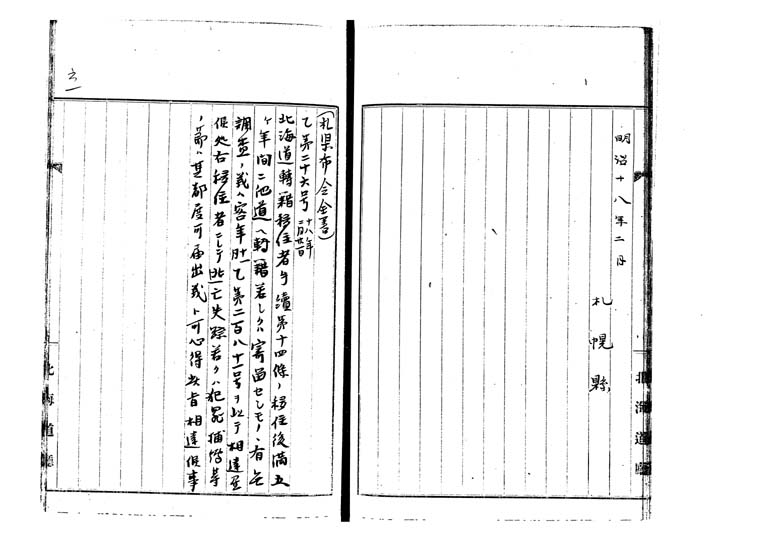 明治十八年二月
札幌縣
北海道廳
(札県布令全書)
乙第二十六号 十八年二月廿一日
北海道轉籍移住者手續第十四條ノ移住後満五
ケ年間ニ他道ヘ轉籍若シクハ寄留セシモノヽ有無
調査ノ義ハ客年 乙第二百八十一号ヲ以テ相達置
候処右移住者ニシテ逃亡失踪若クハ犯罪捕 等
ノ節ハ其都度可届出義ト可心得此旨相達候事
北海道廳